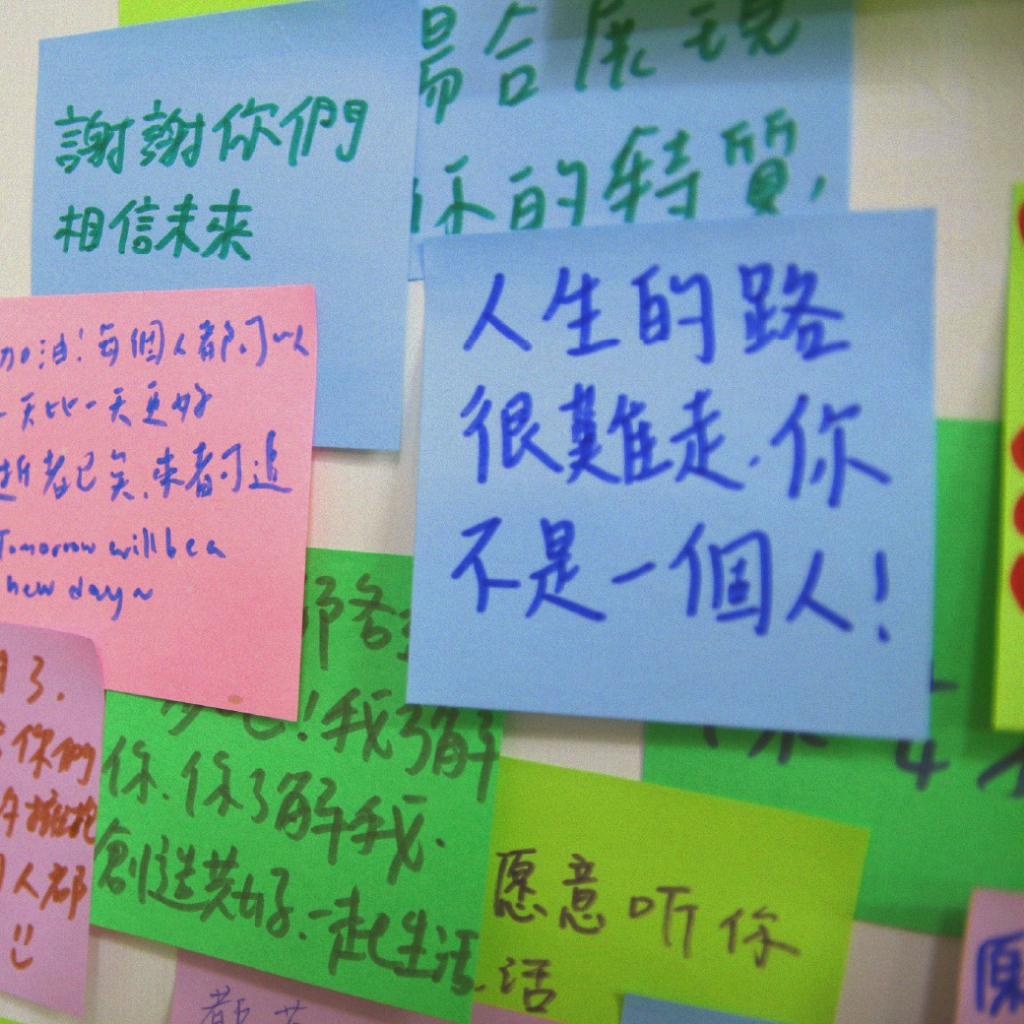 謝謝你們
相信未來
場合展現
你的特質,
人生的路
很難走.你
不是一個人!
加油!每個人都可以
一天比一天更好
逝者已矣,來者可追
Tomorrow will be a
new day~
了.
你們
擁抱
人都
吧!我了解
你.你了解我.
創造美好.一起生活
愿意听你
话